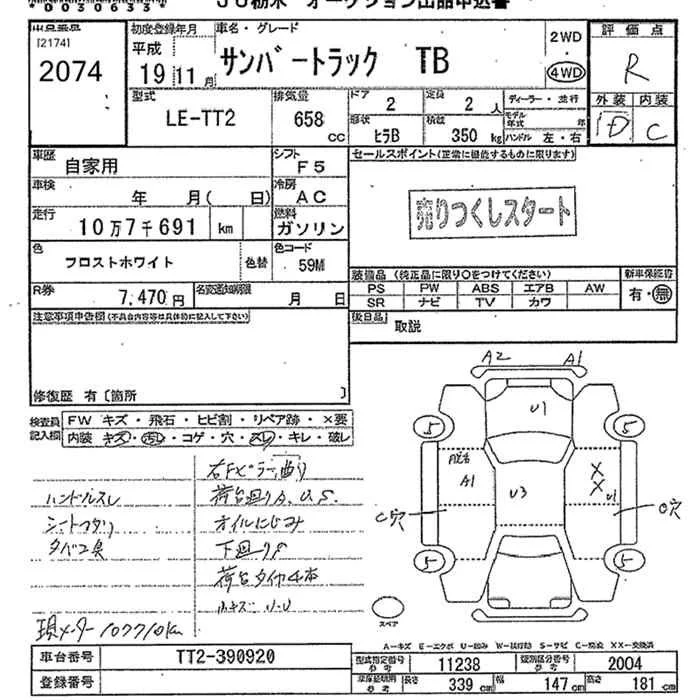 *0050633*
JU栃木 オークション出品申込書
出品番号
[2174]
2074
初度登録年月
平成
19 11月
車名・グレード
サンバートラック TB
2WD
4WD
評価点
R
外装 内装
D C
型式
LE-TT2
排気量
658 CC
ドア
2
定員
2 人
形状
ヒラB
積載
350 kg
ディーラー・並行
モデル年式 年
ハンドル 左・右
車歴
自家用
シフト
F5
セールスポイント(正常に機能するものに限ります)
売りつくしスタート
車検
年 月( 日)
冷房
AC
走行
10万7千691 km
燃料
ガソリン
色
フロストホワイト
色替
色コード
59M
装備品 (純正品に限り○をつけてください)
新車保証書
PS PW ABS エアB AW
SR ナビ TV カワ
有・無
R券
7,470円
名変通知期限
月 日
後日品
取説
注意事項申告欄(不具合内容等は具体的に記入して下さい)
修復歴 有〔箇所 〕
検査員記入欄
FW キズ・飛石・ヒビ割・リペア跡・×要
内装 キズ・汚レ・コゲ・穴・スレ・キレ・破レ
右Fピラー曲り
ハンドルスレ
荷台廻りA.U.S.
シートヘタリ
オイルにじみ
タバコ臭
下廻りS
荷台タイヤ4本
小キズ・U
現メーター107710km
A2 A1
U1
5 5
A1
U3
X
X
U1
C穴
C穴
5 5
スペア
A-キズ E-エクボ U-凹み W-板修跡 S-サビ C-腐食 XX-交換済
車台番号
TT2-390920
登録番号
型式指定番号
参考
11238
類別区分番号
参考
2004
車庫証明用
参考
長さ
339 cm
幅
147 cm
高さ
181 cm